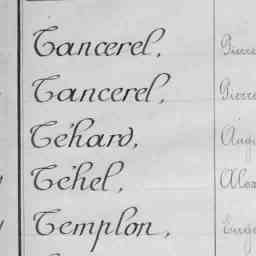 Tancerel, Pierre
Tancerel, Pierre
Téhard,
Téhel,
Templon,